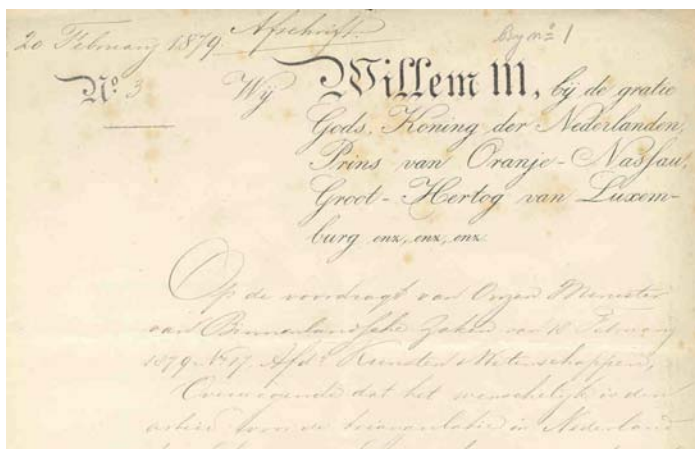 20 Februarij 1879. Afschrift.
Bij nº 1
Nº 3
Wij Willem III, bij de gratie
Gods, Koning der Nederlanden,
Prins van Oranje-Nassau,
Groot-Hertog van Luxem-
burg enz, enz, enz
Op de voordragt van Onzen Minister
van Binnenlandsche Zaken van 18 Februarij
1879 Nº 17. Afdg Kunsten & Wetenschappen,
Overwegende dat het wenschelijk is den
arbeid voor de triangulatie in Nederland